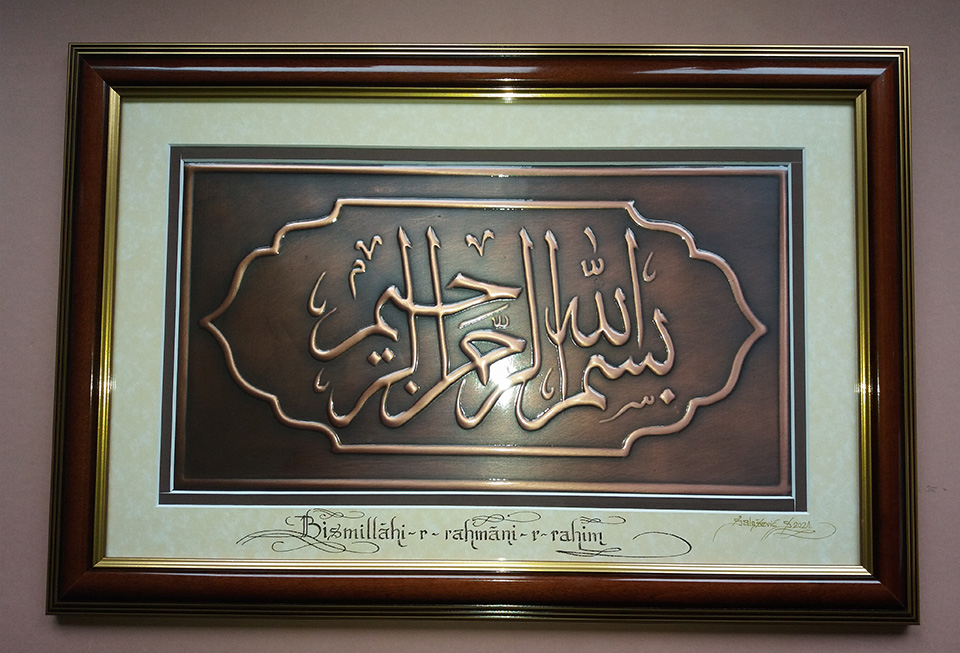 بسم الله الرحمن الرحيم
Bismillāhi-r-rahmāni-r-rahim
2021